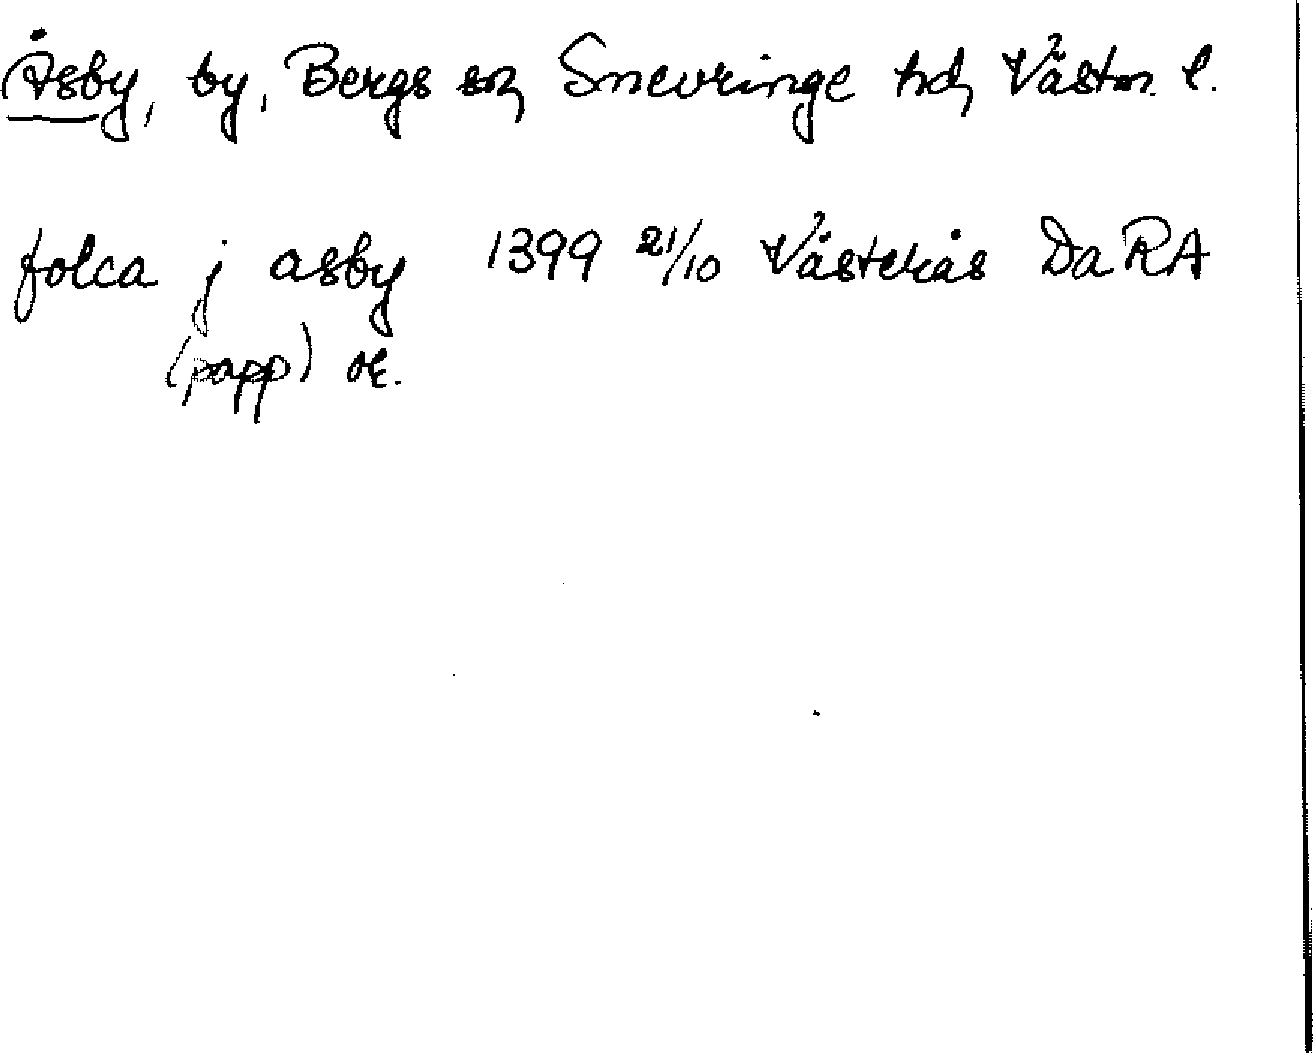 Åsby, by, Bergs sn, Snevringe hd, Västm. l.
folca j asby 1399 21/10 Västerås DaRA
(papp) or.